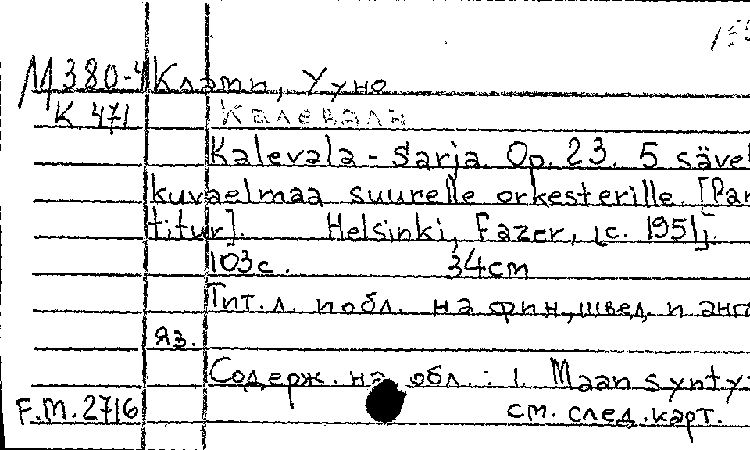 М380-4 Клами, Ууно
К 471 Калевала
Kalevala - Sarja. Op. 23. 5 sävel
kuvaelmaa suurelle orkesterille. [Par
titur]. Helsinki, Fazer, [c. 1951].
103с. 34cm
Тит.л. и обл. на фин., швед. и англ
яз.
Содерж. на обл.: 1. Maan synty
F.M.2716 см. след. карт.